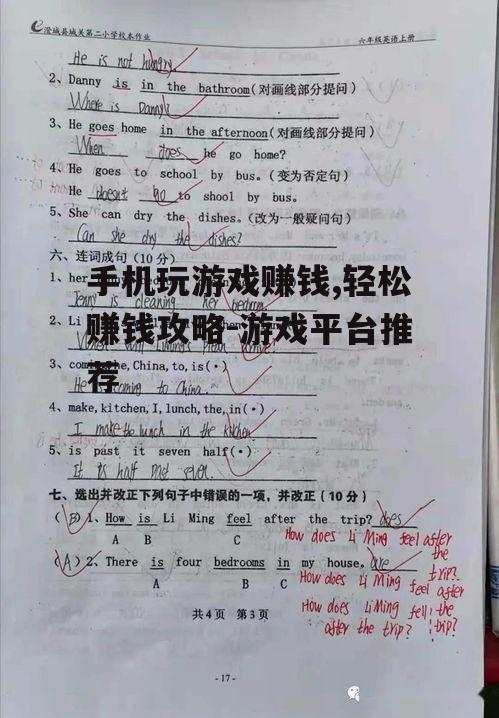 澄城县城关第二小学校本作业 六年级英语上册
He is not hungry
2、Danny is in the bathroom(对画线部分提问)
Where is Danny?
3、He goes home in the afternoon(对画线部分提问)
When does he go home?
4、He goes to school by bus。(变为否定句)
He doesn't go to shool by bus.
5、She can dry the dishes。(改为一般疑问句)
Can she dry the dishes?
六、连词成句(10分)
手机玩游戏赚钱,轻松
赚钱攻略-游戏平台推
荐
1、her
Jenny is cleaning her bedroom.
2、Li
3、come, he,China,to,is(•)
He is coming to China.
4、make,kitchen,I,lunch,the,in(•)
I make the lunch in the kitchen
5、is past it seven half(•)
It is half past seven.
七、选出并改正下列句子中错误的一项,并改正(10分)
(B)1、How is Li Ming feel after the trip? does
A B C
How does Li Ming feel after the trip?
(A)2、There is four bedrooms in my house。are
A B C
How does Li Ming feel after the trip?
How does Li Ming fell after the trip?
共4页 第3页
-17-